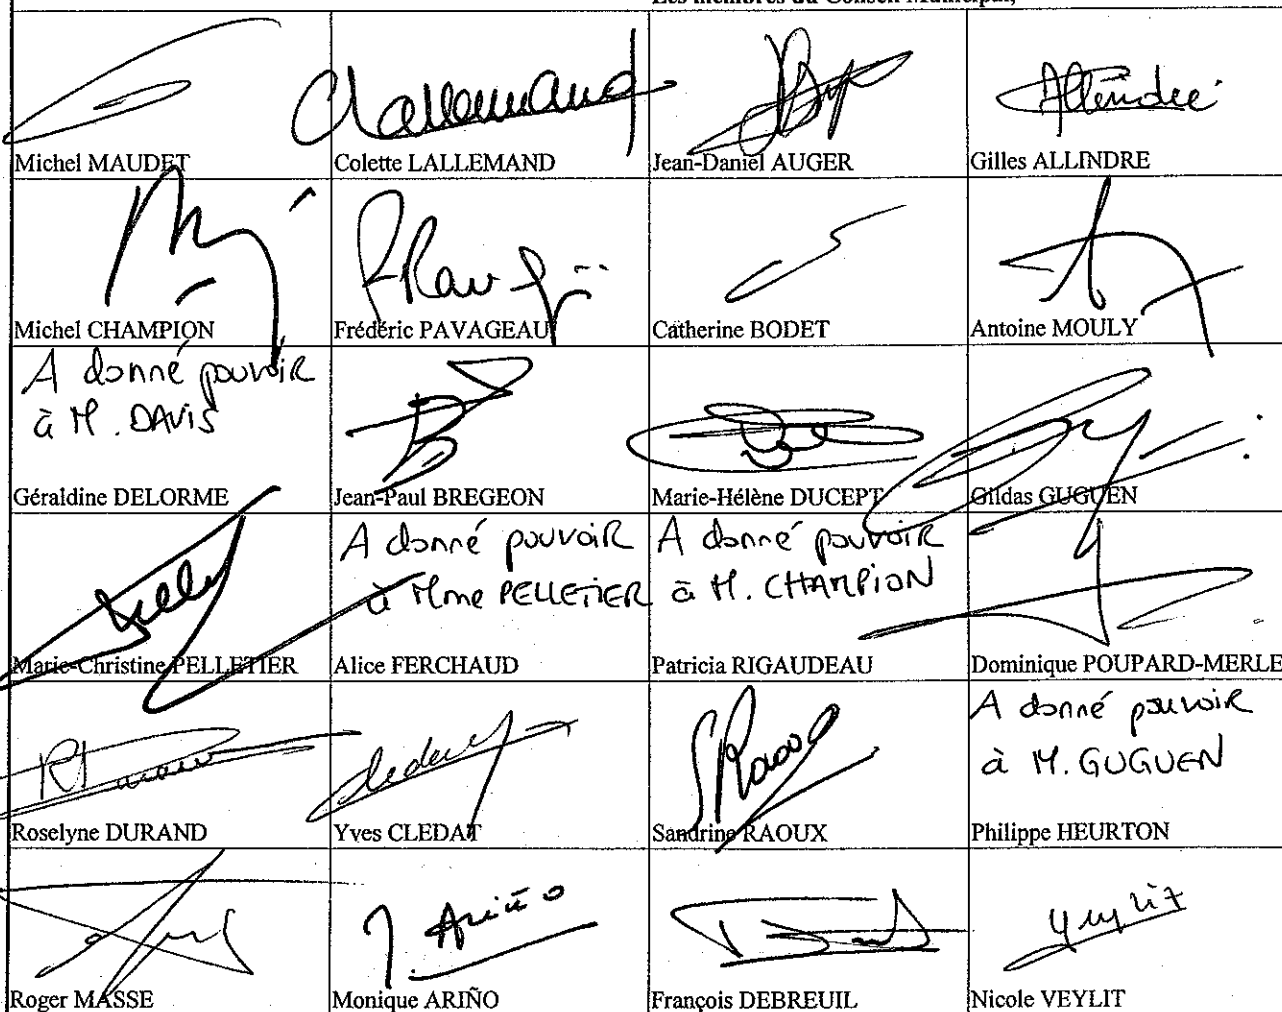 Les membres du Conseil Municipal,
Michel MAUDET
Lallemand
Colette LALLEMAND
Jean-Daniel AUGER
Allindre
Gilles ALLINDRE
Michel CHAMPION
Frédéric PAVAGEAU
Catherine BODET
Antoine MOULY
A donné pouvoir
à M. DAVIS
Géraldine DELORME
Jean-Paul BREGEON
Marie-Hélène DUCEPT
Gildas GUGUEN
Marie-Christine PELLETIER
A donné pouvoir
à Mme PELLETIER
Alice FERCHAUD
A donné pouvoir
à M. CHAMPION
Patricia RIGAUDEAU
Dominique POUPARD-MERLE
Roselyne DURAND
Yves CLEDAT
S Raoux
Sandrine RAOUX
A donné pouvoir
à M. GUGUEN
Philippe HEURTON
Roger MASSE
Ariño
Monique ARIÑO
François DEBREUIL
Nicole VEYLIT